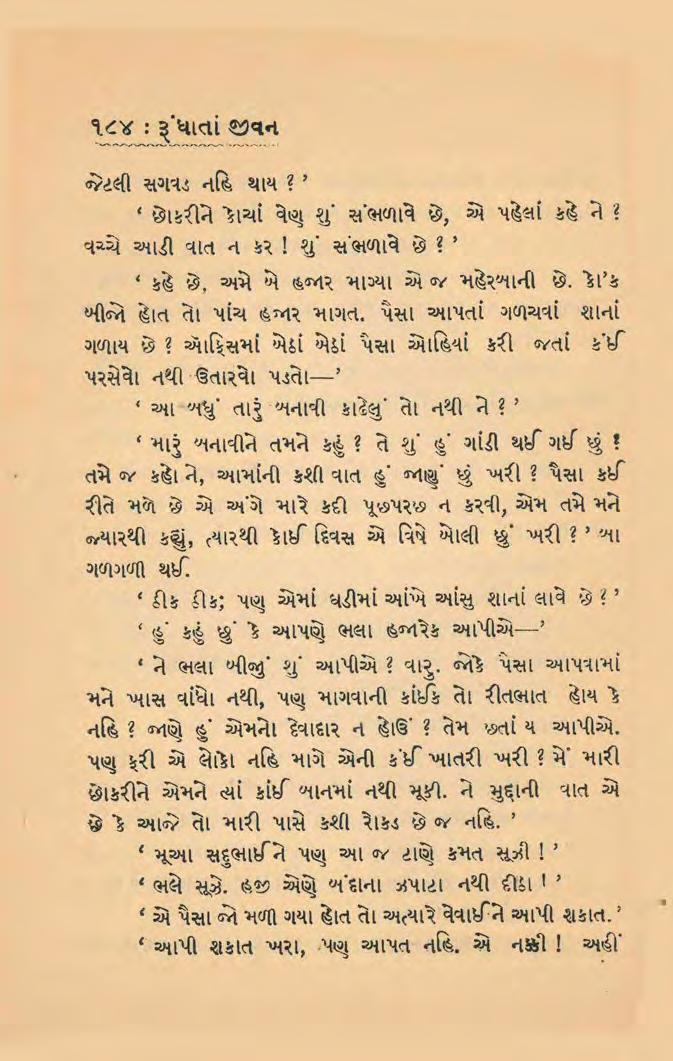 ૧૮૪ : રૂંધાતાં જીવન
જેટલી સગવડ નહિ થાય ? ’
‘ છોકરીને કોચાં વેણ શું સંભળાવે છે, એ પહેલાં કહે ને ?
વચ્ચે આડી વાત ન કર ! શું સંભળાવે છે ? ’
‘ કહે છે, અમે બે હજાર માગ્યા એ જ મહેરબાની છે. કો’ક
બીજો હોત તો પાંચ હજાર માગત. પૈસા આપતાં ગળચવાં શાનાં
ગળાય છે ? ઑફિસમાં બેઠાં બેઠાં પૈસા ઓહિયાં કરી જતાં કંઈ
પરસેવો નથી ઉતારવો પડતો—’
‘ આ બધું તારું બનાવી કાઢેલું તો નથી ને ? ’
‘ મારું બનાવીને તમને કહું ? તે શું હું ગાંડી થઈ ગઈ છું ?
તમે જ કહો ને, આમાંની કશી વાત હું જાણું છું ખરી ? પૈસા કઈ
રીતે મળે છે એ અંગે મારે કદી પૂછપરછ ન કરવી, એમ તમે મને
જ્યારથી કહ્યું, ત્યારથી કોઈ દિવસ એ વિષે બોલી છું ખરી ? ’ બા
ગળગળી થઈ.
‘ ઠીક ઠીક; પણ એમાં ઘડીમાં આંખે આંસુ શાનાં લાવે છે ? ’
‘ હું કહું છું કે આપણે ભલા હજારેક આપીએ—’
‘ ને ભલા બીજું શું આપીએ ? વારુ. જોકે પૈસા આપવામાં
મને ખાસ વાંધો નથી, પણ માગવાની કાંઈક તો રીતભાત હોય કે
નહિ ? જાણે હું એમનો દેવાદાર ન હોઉં ? તેમ છતાં ય આપીએ.
પણ ફરી એ લોકો નહિ માગે એની કંઈ ખાતરી ખરી ? મેં મારી
છોકરીને એમને ત્યાં કાંઈ બાનમાં નથી મૂકી. ને મુદ્દાની વાત એ
છે કે આજે તો મારી પાસે કશી રોકડ છે જ નહિ. ’
‘ મૂઆ સદુભાઈને પણ આ જ ટાણે કમત સૂઝી ! ’
‘ ભલે સૂઝે. હજી એણે બંદાના ઝપાટા નથી દીઠા ! ’
‘ એ પૈસા જો મળી ગયા હોત તો અત્યારે વેવાઈને આપી શકાત. ’
‘ આપી શકાત ખરા, પણ આપત નહિ. એ નક્કી ! અહીં